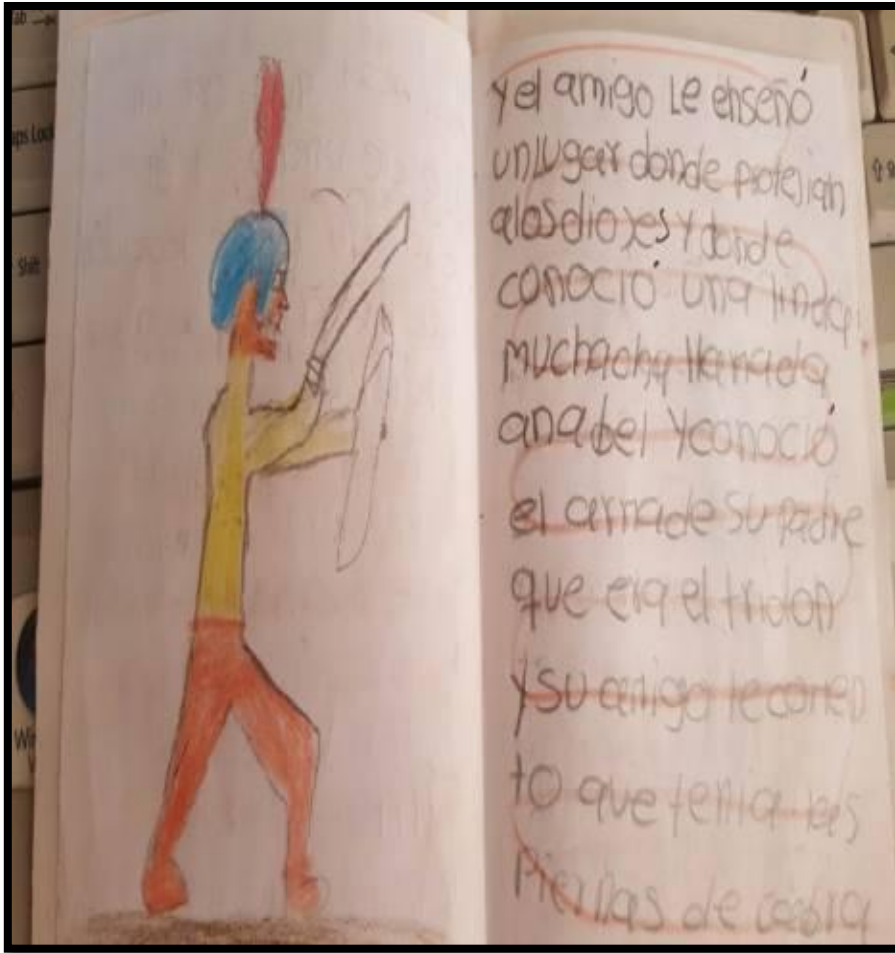 y el amigo Le enseñó
un lugar donde protejian
a los dioxes y donde
conoció una linda
muchacha llamada
anabel y conoció
el arma de su padre
que era el tridon
y su amigo le conen
to que tenia las
Piernas de cabra
Shift